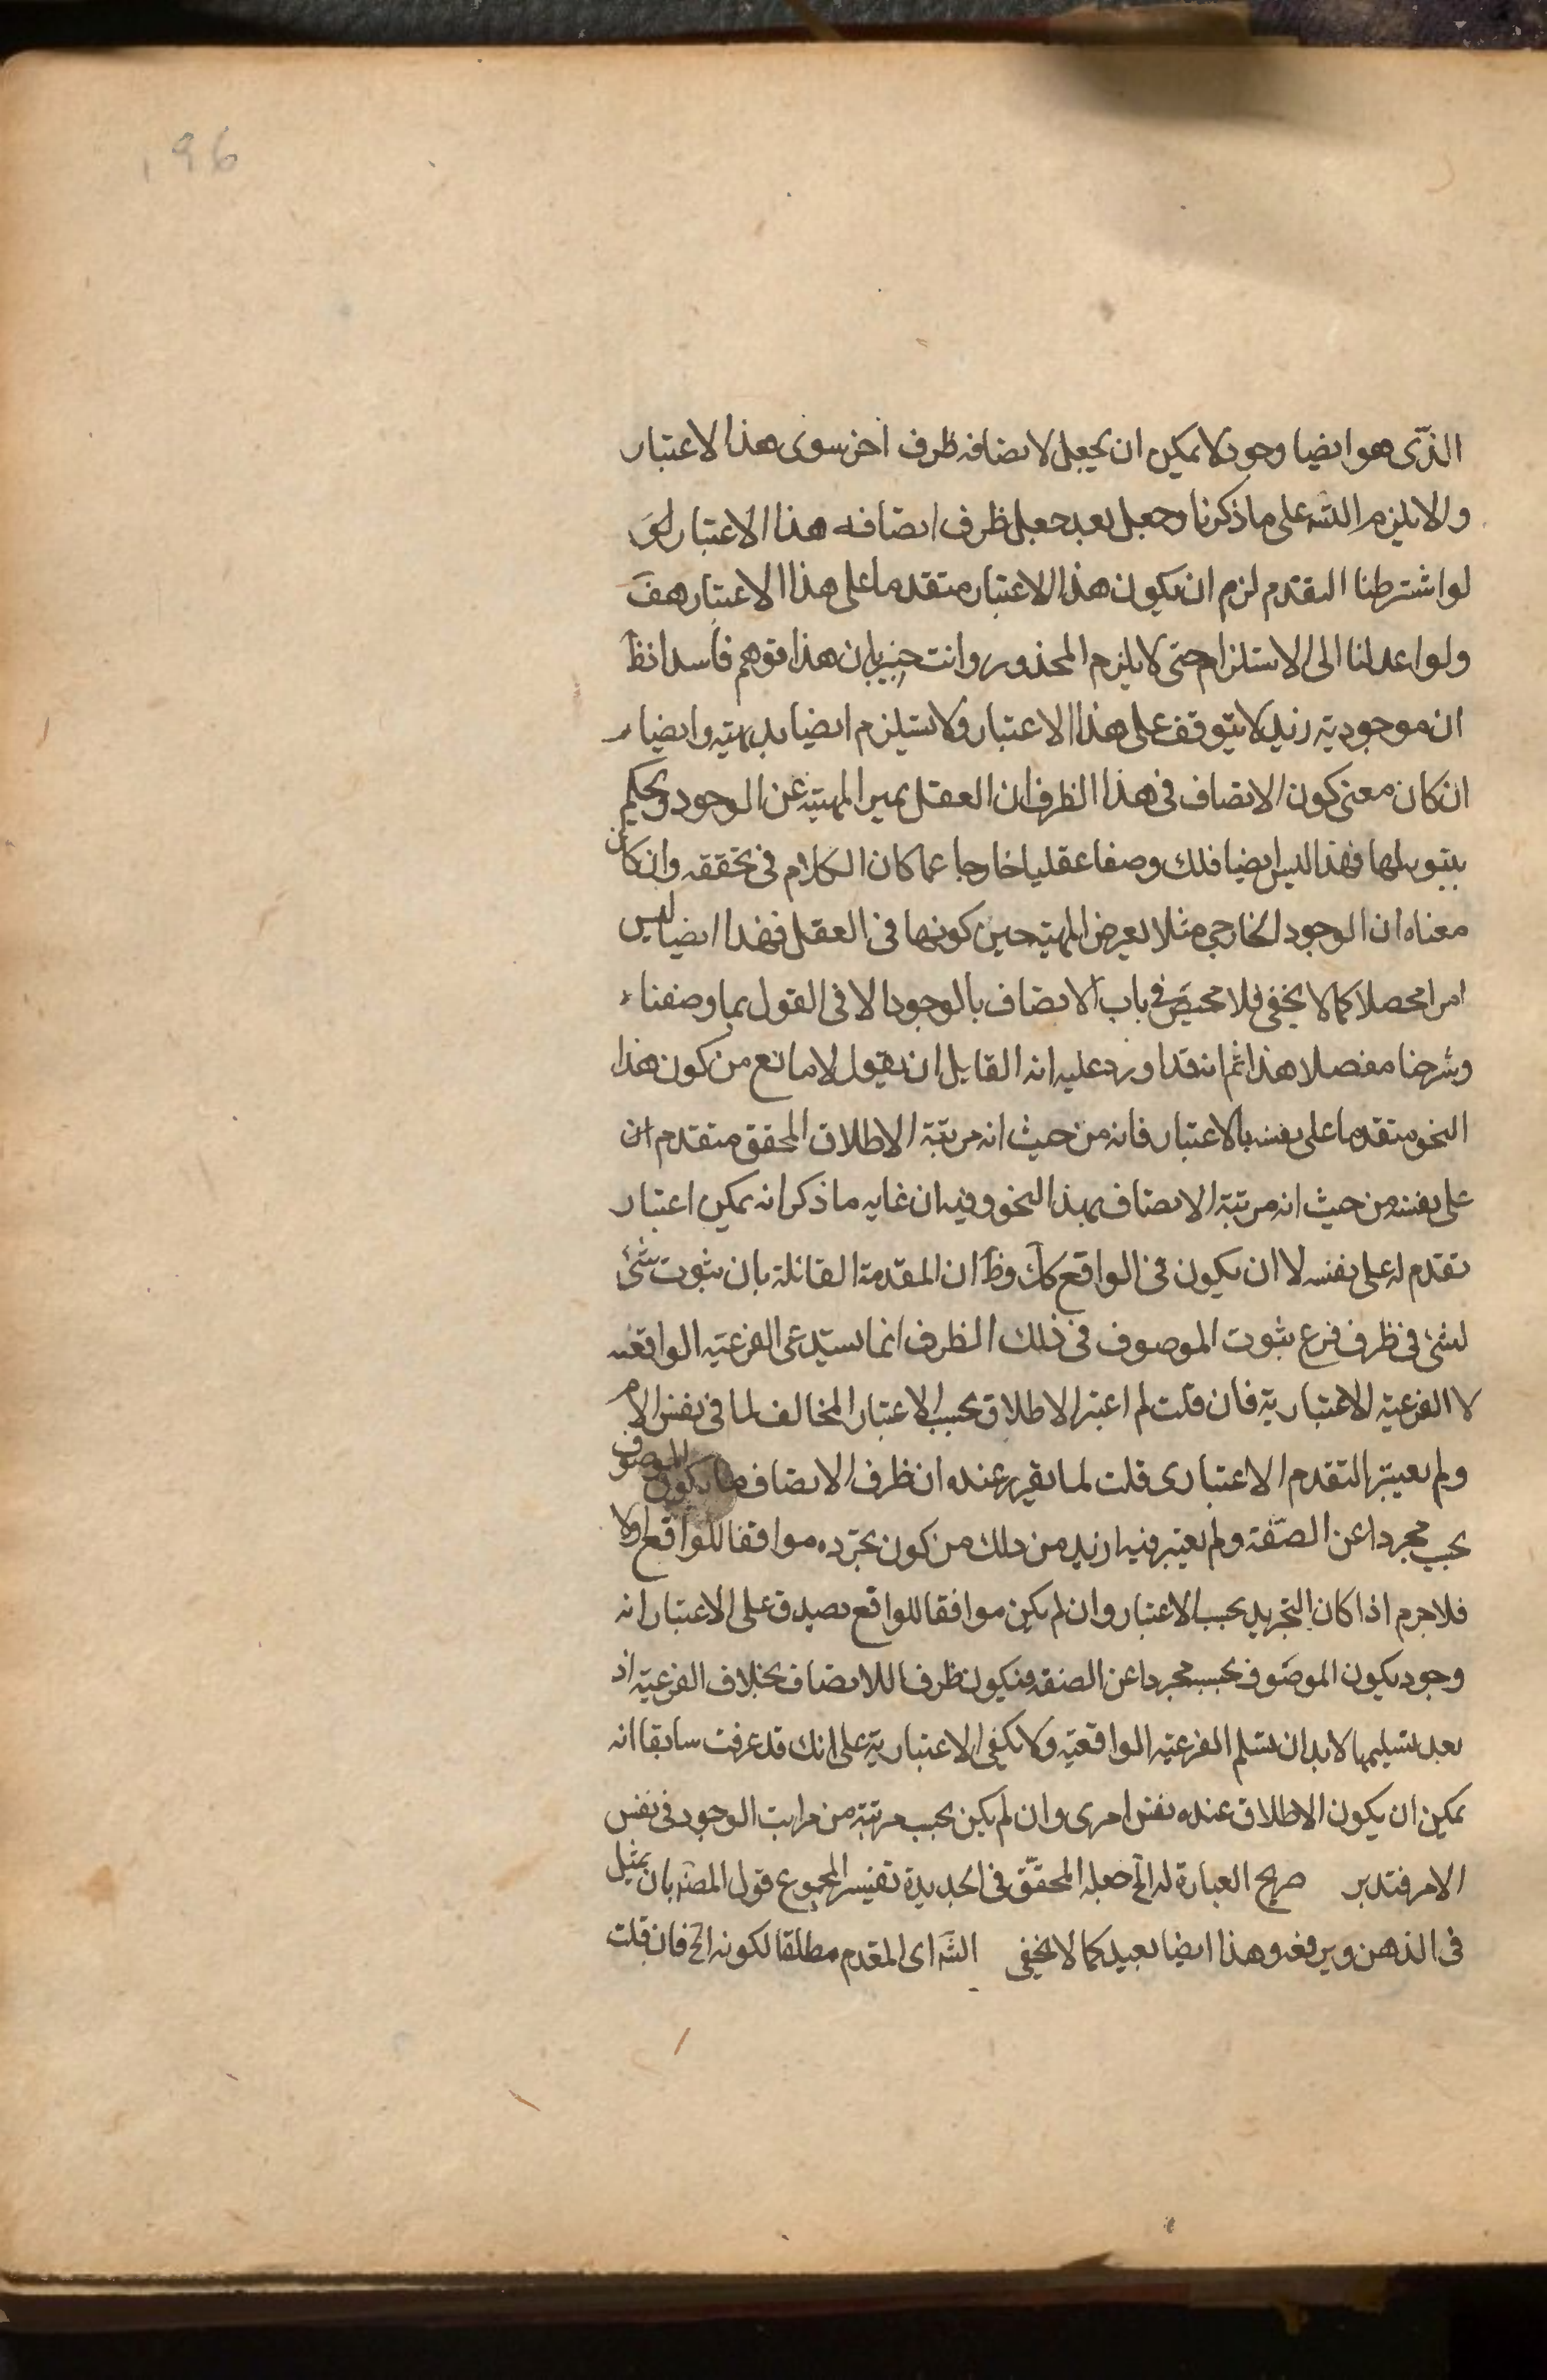 196
الذّى هو ايضا وجود لا يمكن ان يجعل لاتصافه ظرف اخر سوى هذا الاعتبار
والا يلزم التسه على ما ذكرنا وجعل بعد جعل ظرف اتصافه هذا الاعتبار
لو اشترطنا التقدم لزم ان يكون هذا الاعتبار متقدما على هذا الاعتبار هف
ولو اعدلنا الى الاستلزام حتى لا يلزم المحذور وانت خبير بان هذا توهم فاسد اذ ظ
ان موجودية زيد لا يتوقف على هذا الاعتبار ولا يستلزم ايضا بديهته وايضا
ان كان معنى كون الاتصاف فى هذا الظرف ان العقل يميز المهيته عن الوجود ويحكم
بثبوته لها فهذا ليس ايضا فلك وصفا عقليا خارجا عما كان الكلام فى تحققه وان كان
معناه ان الوجود الخارجى مثلا يعرض المهية حين كونها فى العقل فهذا ايضا ليس
امرا محصلا كما لا يخفى فلا محيص فى باب الاتصاف بالوجود الا فى القول بما وصفنا
وشرحنا مفصلا هذا ثم انه قد اورد عليه انه القايل ان يقول لا مانع من كون هذا
النحو متقدما على نفسه بالاعتبار فانه من حيث انه مرتبة الاطلاق المحقق متقدم
على نفسه من حيث انه مرتبة الاتصاف بهذا النحو وفيه ان غايه ما ذكر انه يمكن اعتبار
تقدم له على نفسه لا ان يكون فى الواقع كك وظ ان المقدمة القائلة بان ثبوت شئ
لشئ فى ظرف فرع ثبوت الموصوف فى ذلك الظرف انما يستدعى الفرعيه الواقعيه
لا الفرعية الاعتبارية فان قلت لم اعتبر الاطلاق بحسب الاعتبار المخالف لما فى نفس الامر
ولم يعتبر التقدم الاعتبارى قلت لما تقرر عنده ان ظرف الاتصاف ما يكون الموصوف
بحسبه مجردا عن الصّفة ولم يعتبر فيه ازيد من ذلك من كون تجرّده موافقا للواقع اولا
فلا جرم اذا كان التجريد بحسب الاعتبار وان لم يكن موافقا للواقع يصدق على الاعتبار انه
وجود يكون الموصوف بحسبه مجردا عن الصفة فيكون ظرفا للاتصاف بخلاف الفرعيّة اذ
بعد تسليمها لا بد ان يسلم الفرعيّه الواقعيّه ولا يكفى الاعتبارية على انك قد عرفت سابقا انه
يمكن ان يكون الاطلاق عنده نفس امرى وان لم يكن بحسب مرتبة من مراتب الوجود فى نفس
الامر فتدبر صريح العبارة له الخ جعله المحقّق فى الجديدة تفسير المجموع قول المصه بان يمثيل
فى الذهن ويرفعه وهذا ايضا بعيد كما لا يخفى الشه اى المقدم مطلقا لكونه الخ فان قلت